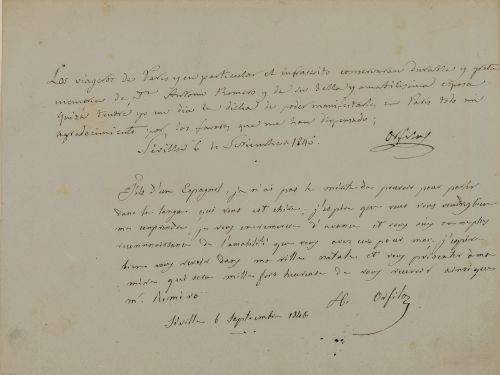 Los viageros de Paris y en particular el infrascrito conservaran durable y grata
memoria de Dn Antonio Romero y de su bella y amabilisima esposa
quizá tendré yo un dia la dicha de poder manifestarles en Paris todo mi
agradecimiento por los favores que me han dispensado;
Sévilla 6 de Setiembre 1846.
Orfila
Fils d'un Espagnol, je n'ai pas le mérite de pouvoir vous parler
dans la langue qui vous est chère, j'espère que vous vous voudrez bien
me comprendre, je vous en remercie d'avance et vous suis
reconnaissant de l'amabilité que vous avez eue pour moi, j'espère
bien vous revoir dans ma ville natale et vous présenter à ma
mère qui sera mille fois heureuse de vous recevoir ainsi que
mr. Romero
Séville 6 Septembre 1846
Orfila